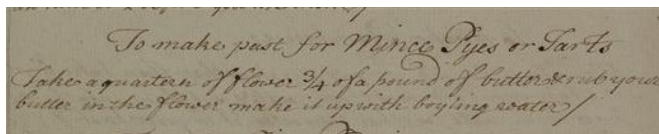 To make past for Mince Pyes or Tarts
Take a quartern of flower 3/4 of a pound of butter & rub your
butter in the flower make it up with boyling water /